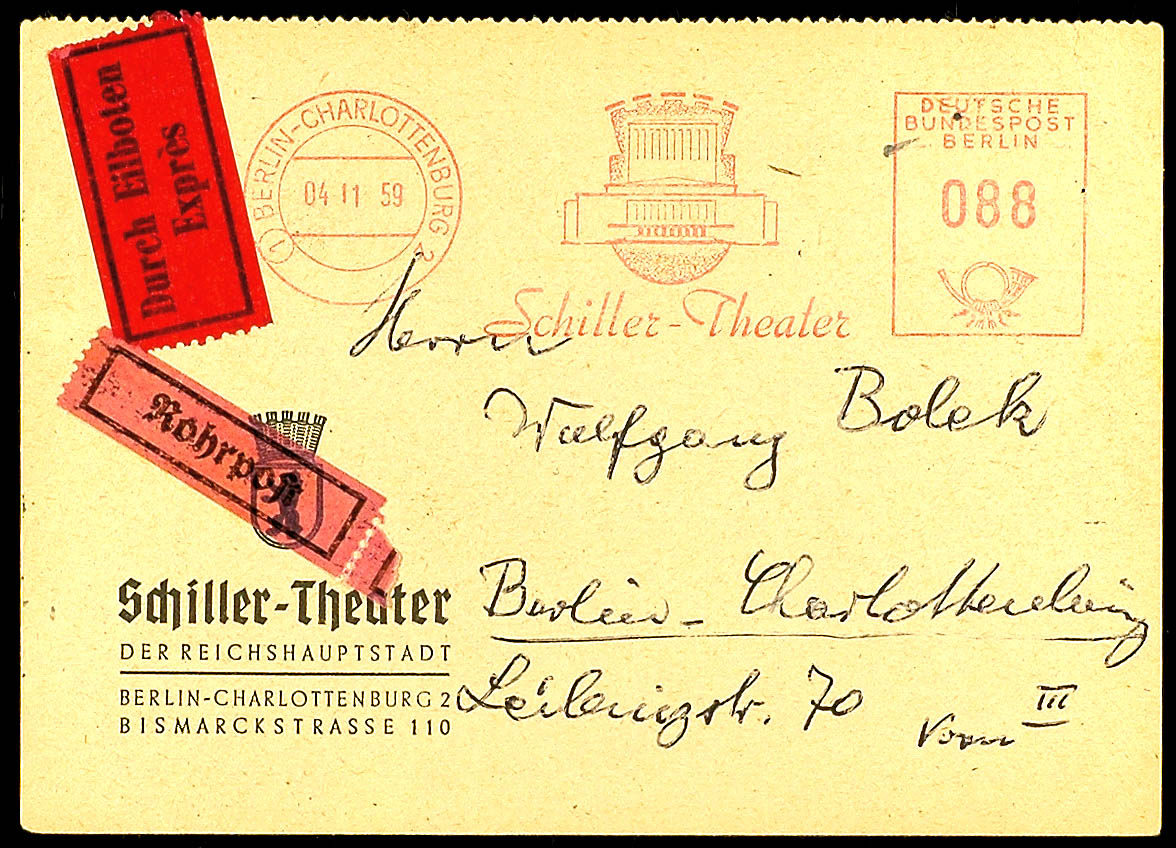 Durch Eilboten
Exprès
(1) BERLIN-CHARLOTTENBURG 2
04 11 59
Schiller-Theater
DEUTSCHE
BUNDESPOST
BERLIN
088
Herrn
Wolfgang Bolek
Rohrpost
Berlin-Charlottenburg
Leibnizstr. 70
Vorn III
Schiller-Theater
DER REICHSHAUPTSTADT
BERLIN-CHARLOTTENBURG 2
BISMARCKSTRASSE 110